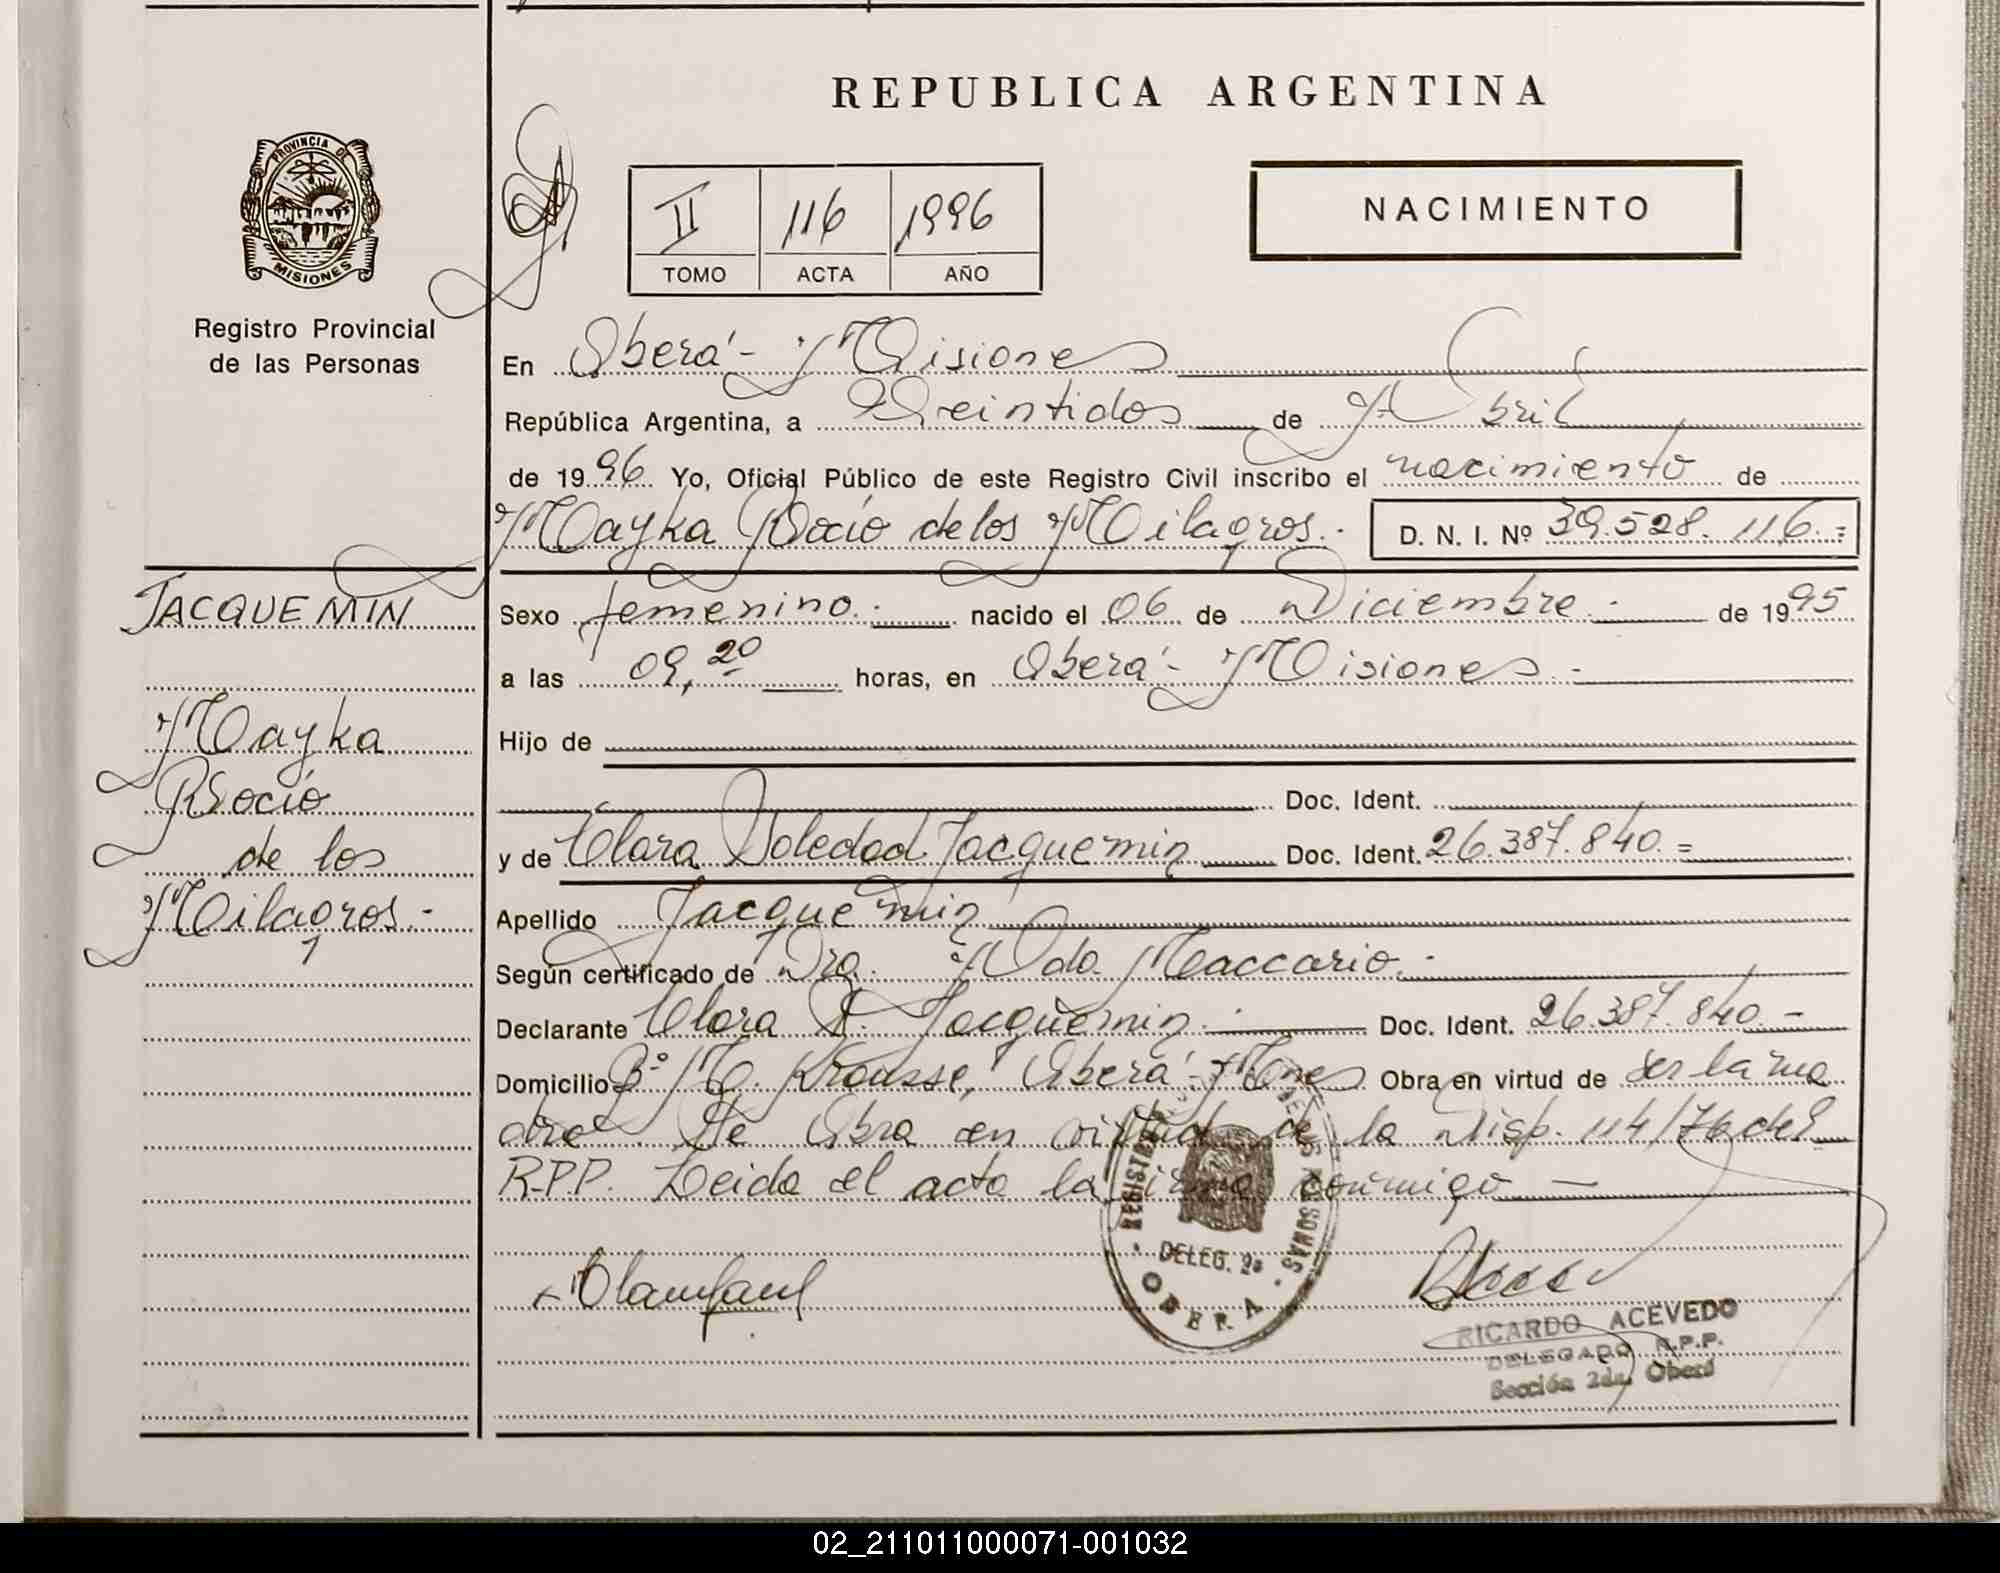 REPUBLICA ARGENTINA
PROVINCIA DE
MISIONES
Registro Provincial
de las Personas
II 116 1996
TOMO ACTA AÑO
NACIMIENTO
En Oberá - Misiones
República Argentina, a Veintidos de Abril
de 1996 Yo, Oficial Público de este Registro Civil inscribo el nacimiento de
Mayka Rocío de los Milagros.- D. N. I. Nº 39.528.116.=
JACQUEMIN
Mayka
Rocío
de los
Milagros.-
Sexo femenino.- nacido el 06 de Diciembre.- de 1995
a las 09,20 horas, en Oberá - Misiones.-
Hijo de
Doc. Ident.
y de Clara Soledad Jacquemin Doc. Ident. 26.387.840.=
Apellido Jacquemin
Según certificado de Dra. Maccario.-
Declarante Clara S. Jacquemin.- Doc. Ident. 26.387.840.-
Domicilio Bº M. Krausse, Oberá - Mnes Obra en virtud de ser la ma
dre. Se Obra en virtud de la Disp. 114/76 del
R.P.P. Leida el acta la firma conmigo —
REGISTRO DE LAS PERSONAS
DELEG. 2a
OBERA
RICARDO ACEVEDO
DELEGADO R.P.P.
Sección 2da. Oberá
02_211011000071-001032